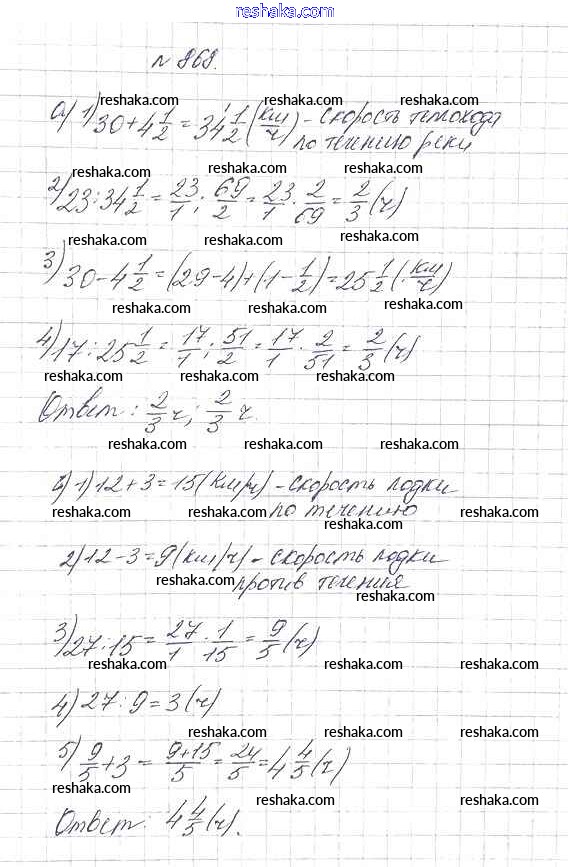 reshaka.com
№ 868.
reshaka.com reshaka.com reshaka.com
а) 1) 30 + 4 1/2 = 34 1/2 (км/ч) - скорость теплохода
по течению реки
reshaka.com reshaka.com
2) 23 : 34 1/2 = 23/1 : 69/2 = 23/1 · 2/69 = 2/3 (ч)
reshaka.com reshaka.com reshaka.com
3) 30 - 4 1/2 = (29 - 4) + (1 - 1/2) = 25 1/2 (км/ч)
reshaka.com reshaka.com reshaka.com
4) 17 : 25 1/2 = 17/1 : 51/2 = 17/1 · 2/51 = 2/3 (ч)
reshaka.com reshaka.com reshaka.com
Ответ: 2/3 ч; 2/3 ч.
reshaka.com reshaka.com reshaka.com
1) 12 + 3 = 15 (км/ч) - скорость лодки
по течению
reshaka.com reshaka.com reshaka.com
2) 12 - 3 = 9 (км/ч) - скорость лодки
против течения
reshaka.com reshaka.com
3) 27 : 15 = 27/1 · 1/15 = 9/5 (ч)
reshaka.com reshaka.com reshaka.com
4) 27 : 9 = 3 (ч)
reshaka.com reshaka.com reshaka.com
5) 9/5 + 3 = 9+15/5 = 24/5 = 4 4/5 (ч)
reshaka.com reshaka.com reshaka.com
Ответ: 4 4/5 (ч).
reshaka.com reshaka.com reshaka.com